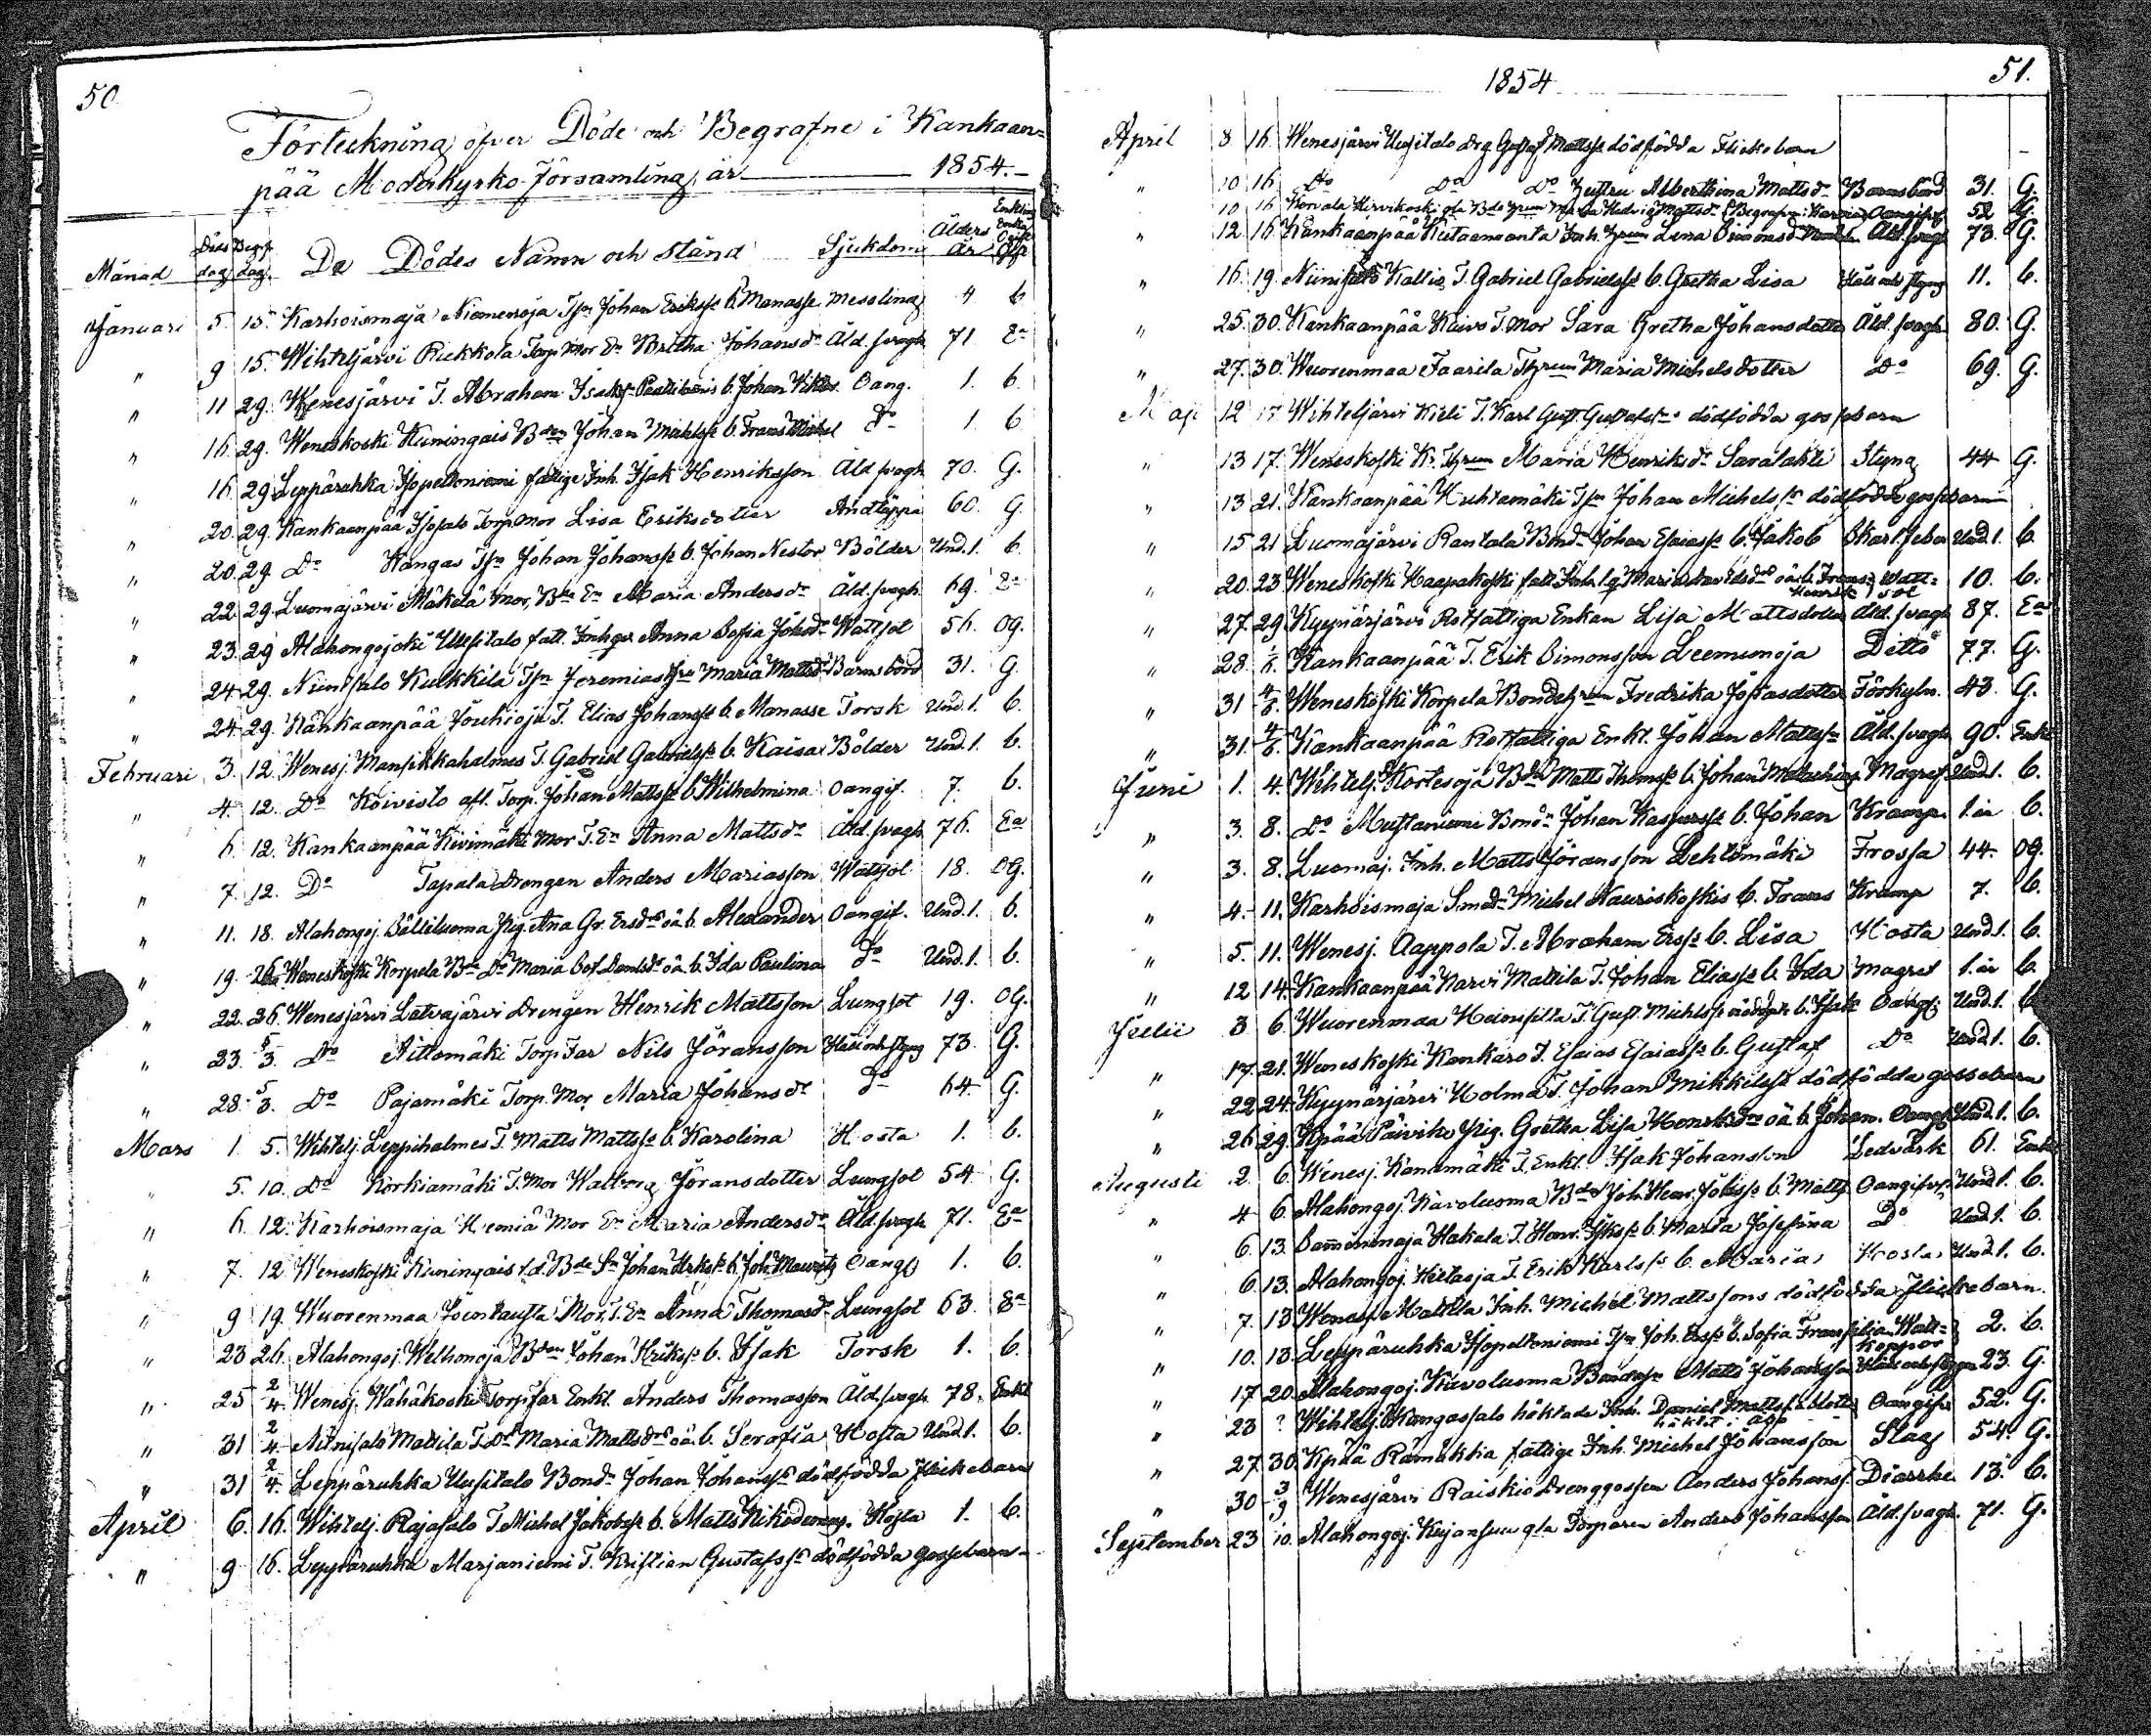 50.
Förteckning öfver Döde och Begrafne i Kankaan=
pää Moderkyrko-Församling, år 1854.
Månad Döds dag Begr. dag De Dödes Namn och stånd Sjukdom Ålders År Enkling Enka Gift Ogift
Januari 5. 15. Karhoismaja Niemenoja Tpn Johan Erikss b. Manasse Messling 4 b
" 9 15. Wihteljärvi Ruckkola Torp. Mor Brítha Johansdr Åld. svagh 71 Ea
" 11 29. Wenesjärvi T. Abraham Isaks b. Johan Viktor Oang. 1. b.
" 16. 29. Weneskoski Kuningais Bden Johan Michelss b. Frans Michel Do 1. b
" 16 29 Leppäruhka Isopeltoniemi fattige Inh. Isak Henriksson Åld svagh 70. G.
" 20. 29. Kankaanpää Isosalo Torp Mor Lisa Eriksdotter Andtäppa 60. G.
" 20. 29 Do Kangas Tpn Johan Johanss b. Johan Nestor Bölder Und. 1. b.
" 22 29. Luomajärvi Mäkelä Mor, Bde Ea Maria Andersdr Åld. svagh 69. Ea
" 23. 29 Alahongojoki Uusitalo fatt. Inh. Anna Sofia Johsdr Wattsot 56. OG.
" 24 29. Niinisalo Kulkkila Tpn Jeremias Hru Maria Mattsdr Barnsbörd 31. G.
" 24 29. Kankaanpää Jouhioja T. Elias Johanss b. Manasse Torsk Und. 1. b.
Februari 3. 12. Wenesj. Mansikkahalmes T. Gabriel Gabrielss b. Kaisa Bölder Und. 1. b.
" 4. 12. Do Koivisto afl. Torp. Johan Mattss b. Wilhelmina Oangif. 7. b.
" 6. 12. Kankaanpää Kivimäki Mor T. Ea Anna Mattsdr Åld. svagh 76. Ea
" 7. 12. Do Tapala drengen Anders Mariasson Wattsot 18. OG.
" 11. 18. Alahongoj. Sälliluoma Pig. Ana Gr. Ersdrs oä b. Alexander Oangif. Und. 1. b.
" 19. 26. Weneskoski Korpela Bde Dr Maria Sof. Danlsdrs oä b. Ida Paulina Do Und. 1. b.
" 22. 26. Wenesjärvi Latvajärvi drengen Henrik Mattsson Lungsot 19. OG.
" 23. 5/3. Do Aittomäki Torp Far Nils Jöransson Håll och styng 73. G.
" 28. 5/3. Do Pajamäki Torp. Mor Maria Johansdr Do 64. G.
Mars 1. 5. Wihtelj. Leppihalmes T. Matts Mattss b. Karolina Hosta 1. b.
" 5. 10. Do Korkiamäki T. Mor Walborg Jöransdotter Lungsot 54. G.
" 6. 12. Karhoismaja Heiniä Mor Ea Maria Andersdr Åld. svagh 71. Ea
" 7. 12 Weneskoski Kuningais f.d. Bde Sn Johan b. Joh. Mauritz Oang. 1. b.
" 9 19. Wuorenmaa Mor, T. Ea Anna Thomasdr Lungsot 63. Ea
" 23 26. Alahongoj. Welhonoja Bden Johan Erikss b. Isak Torsk 1. b.
" 25 2/4. Wenesj. Wähäkoski Torp Far Enkl. Anders Thomasson Åld. svagh 78. Enkl
" 31 2/4. Niinisalo Mattila T. Dr Maria Mattsdrs oä. b. Serafia Hosta Und. 1. b.
" 31 2/4. Leppäruhka Uusitalo Bond. Johan Johanss dödfödda Flickebarn
April 6. 16. Wihtelj. Rajasalo T. Michel Jakobss b. Matts Nikodemus. Hosta 1. b.
" 9. 16. Leppäruhka Marjaniemi T. Kristian Gustafss dödfödda gossebarn
1854 51.
April 8 16. Wenesjärvi Uusitalo drg Gustaf Mattss dödfödda Flickebarn
" 10 16. Do Do Do Hustru Alberthina Mattsdr Barnsbörd 31. G.
10 16 Hirvikoski gla Bde Hedvig Mattsdr (Begrafven i Karvia) Oangifv. 52 G.
" 12. 16 Kankaanpää Inh. Hrun Lena Simonsdr Åld. svagh 73. G.
" 16. 19. Niinisalo Kallio T. Gabriel Gabrielss b. Gretha Lisa Håll och styng 11. b.
" 25. 30. Kankaanpää T. Mor Sara Gretha Johansdotter Åld. svagh 80. G.
" 27. 30. Wuorenmaa Faarila Maria Michelsdotter Do 69. G.
Maji 12 17 Wihteljärvi Kieli T. Karl Gust. Gustafss dödfödda gossebarn
" 13 17. Weneskoski Maria Henriksdr Saralahti Styng 44 G.
" 13 21. Kankaanpää Huhtamäki Tpn Johan Michelss dödfödde gossebarn
" 15 21 Luomajärvi Rantala Bond. Johan Esaiass b. Jakob Skarl. feber Und 1. b.
" 20. 23 Weneskoski Haapakoski fatt. Inh. Maria Davidsdrs oä. b. Frans Henrik Watt=sot 10. b.
" 27. 29. Kyynärjärvi Rotfattiga Enkan Lisa Mattsdotter Åld. svagh 87. Ea
" 28. Kankaanpää T. Erik Simonsson Leemunoja Ditto 77. G.
" 31 4/6. Weneskoski Korpela Bondehrun Fredrika Josefsdotter Förkyln. 43. G.
" 31. 4/6. Kankaanpää Rotfattiga Enkl. Johan Mattss Åld. svagh 90. Enkl
Juni 1. 4. Wihtelj. Kortesoja Bds Matts Thomss b. Johan Malachias Magrot Und. 1. b.
" 3. 8. Do Mustaniemi Bond. Johan Kasperss b. Johan Kramp. 1. år b.
" 3. 8. Luomaj. Inh. Matts Jöransson Lehtömäki Frossa 44. OG.
" 4. 11. Karhoismaja Smed. Michel Hauriskoskis b. Frans Kramp 7. b.
" 5. 11. Wenesj. Aappola T. Abraham Erss b. Lisa Hosta Und. 1. b.
" 12 14. Kankaanpää Narvi Mattila T. Johan Eliass b. Ida Magrot 1. år b.
Julii 3 6. Wuorenmaa Heinisilta T. Gust. Michelss b. Isak Oangf. Und. 1. b
" 17. 21. Weneskoski Kankaro T. Esaias Esaiass b. Gustaf Do Und. 1. b.
" 22 24. Kyynärjärvi Holma T. Johan Mikkelss dödfödda gossebarn
" 26 29. Kpää Päivike Pig. Gretha Lisa Henriksdrs oä b. Johan. Oangf. Und. 1. b.
Augusti 2. 6. Wenesj. T. Enkl. Isak Johansson Ledvärk 61. Enkl
" 4 6. Alahongoj. Kuvoluoma Bds Joh. Henr. Johss b. Matts Oangifven Und 1. b.
" 6. 13. Hakala T. Henr. b. Maria Josefina Do Und. 1. b.
" 6. 13. Alahongoj. Hietaoja T. Erik Karlss b. Maria Hosta Und. 1. b.
" 7. 13 Wenesj. Mattila Inh. Michel Mattssons dödfödda Flickebarn.
" 10. 13. Leppäruhka Isopeltoniemi Tpn Joh. Erss b. Sofia Fransilia Watt=koppor 2. b.
" 17 20. Alahongoj. Kuvoluoma Matts Johansson Håll och styng 23. G.
" 23 ? Wihtelj. Kangassalo häktade Inh. Daniel Mattss Oangifv. 52. G.
häktet i Åbo
" 27 30. Kpää fattige Inh. Michel Johansson Slag 54. G.
" 30 3/9 Wenesjärvi Raiskio drenggossen Anders Johanss. Diarrhe 13. b.
September 23 10. Alahongoj. Kujansuu gla Torparen Anders Johansson Åld. svagh. 71. G.